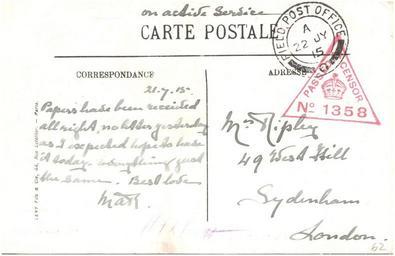 on active service
CARTE POSTALE
FIELD POST OFFICE
A
22 JY
15
PASSED CENSOR
No 1358
CORRESPONDANCE
ADRESSE
21.7.15
Papers have been received
all right, no letter yesterday
as I expected hope to have
it today. everything just
the same. Best love
Mr Ripley
49 West Hill
Sydenham
London.
62